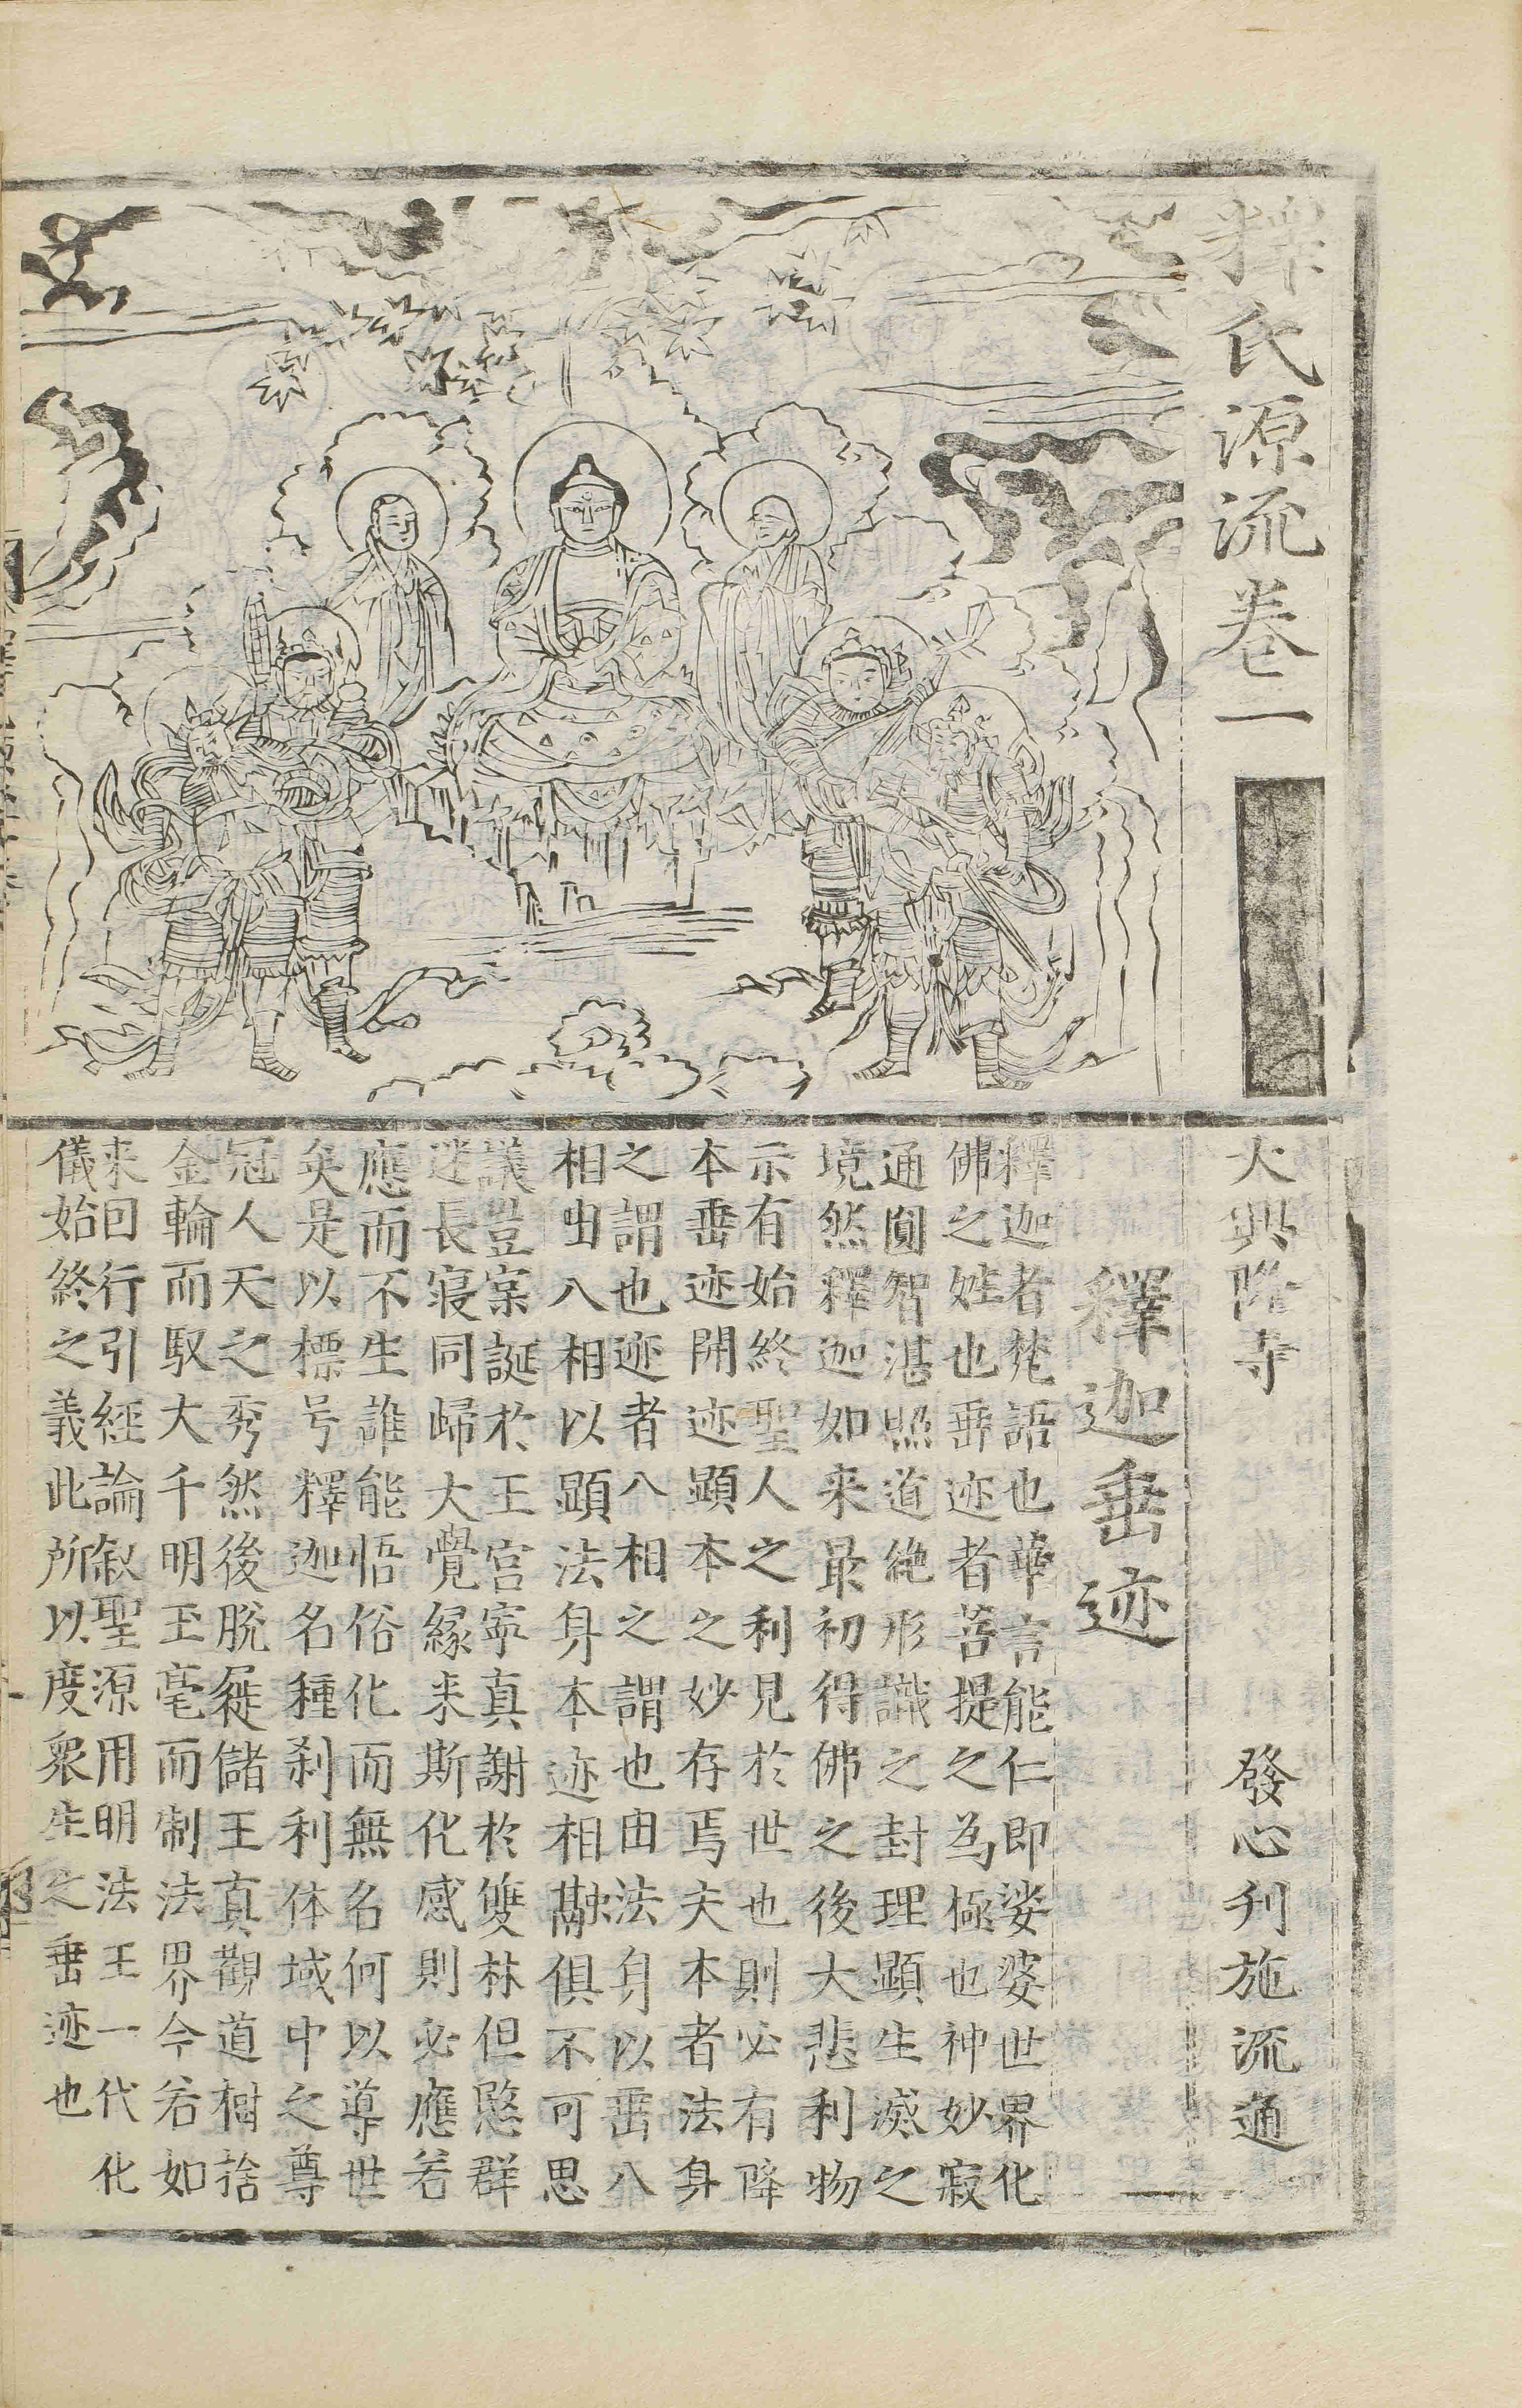 釋氏源流卷一
大興隆寺
發心刋施流通
釋迦垂迹
釋迦者梵語也華言能仁即娑婆世界化
佛之姓也垂迹者菩提之為極也神妙寂
通圓智湛照道絶形識之封理顯生滅之
境然釋迦如来最初得佛之後大悲利物
示有始終聖人之利見於世也則必有降
本垂迹開迹顯本之妙存焉夫本者法身
之謂也迹者八相之謂也由法身以垂八
相由八相以顯法身本迹相融俱不可思
議豈寔誕於王宫寧真謝於雙林但愍群
迷長寢同歸大覺緣来斯化感則必應若
應而不生誰能悟俗化而無名何以導世
矣是以標号釋迦名種刹利体域中之尊
冠人天之秀然後脫屣儲王真觀道樹捨
金輪而馭大千明玉毫而制法界今若如
来回行引經論叙聖源用明法王一代化
儀始終之義此所以度衆生之垂迹也